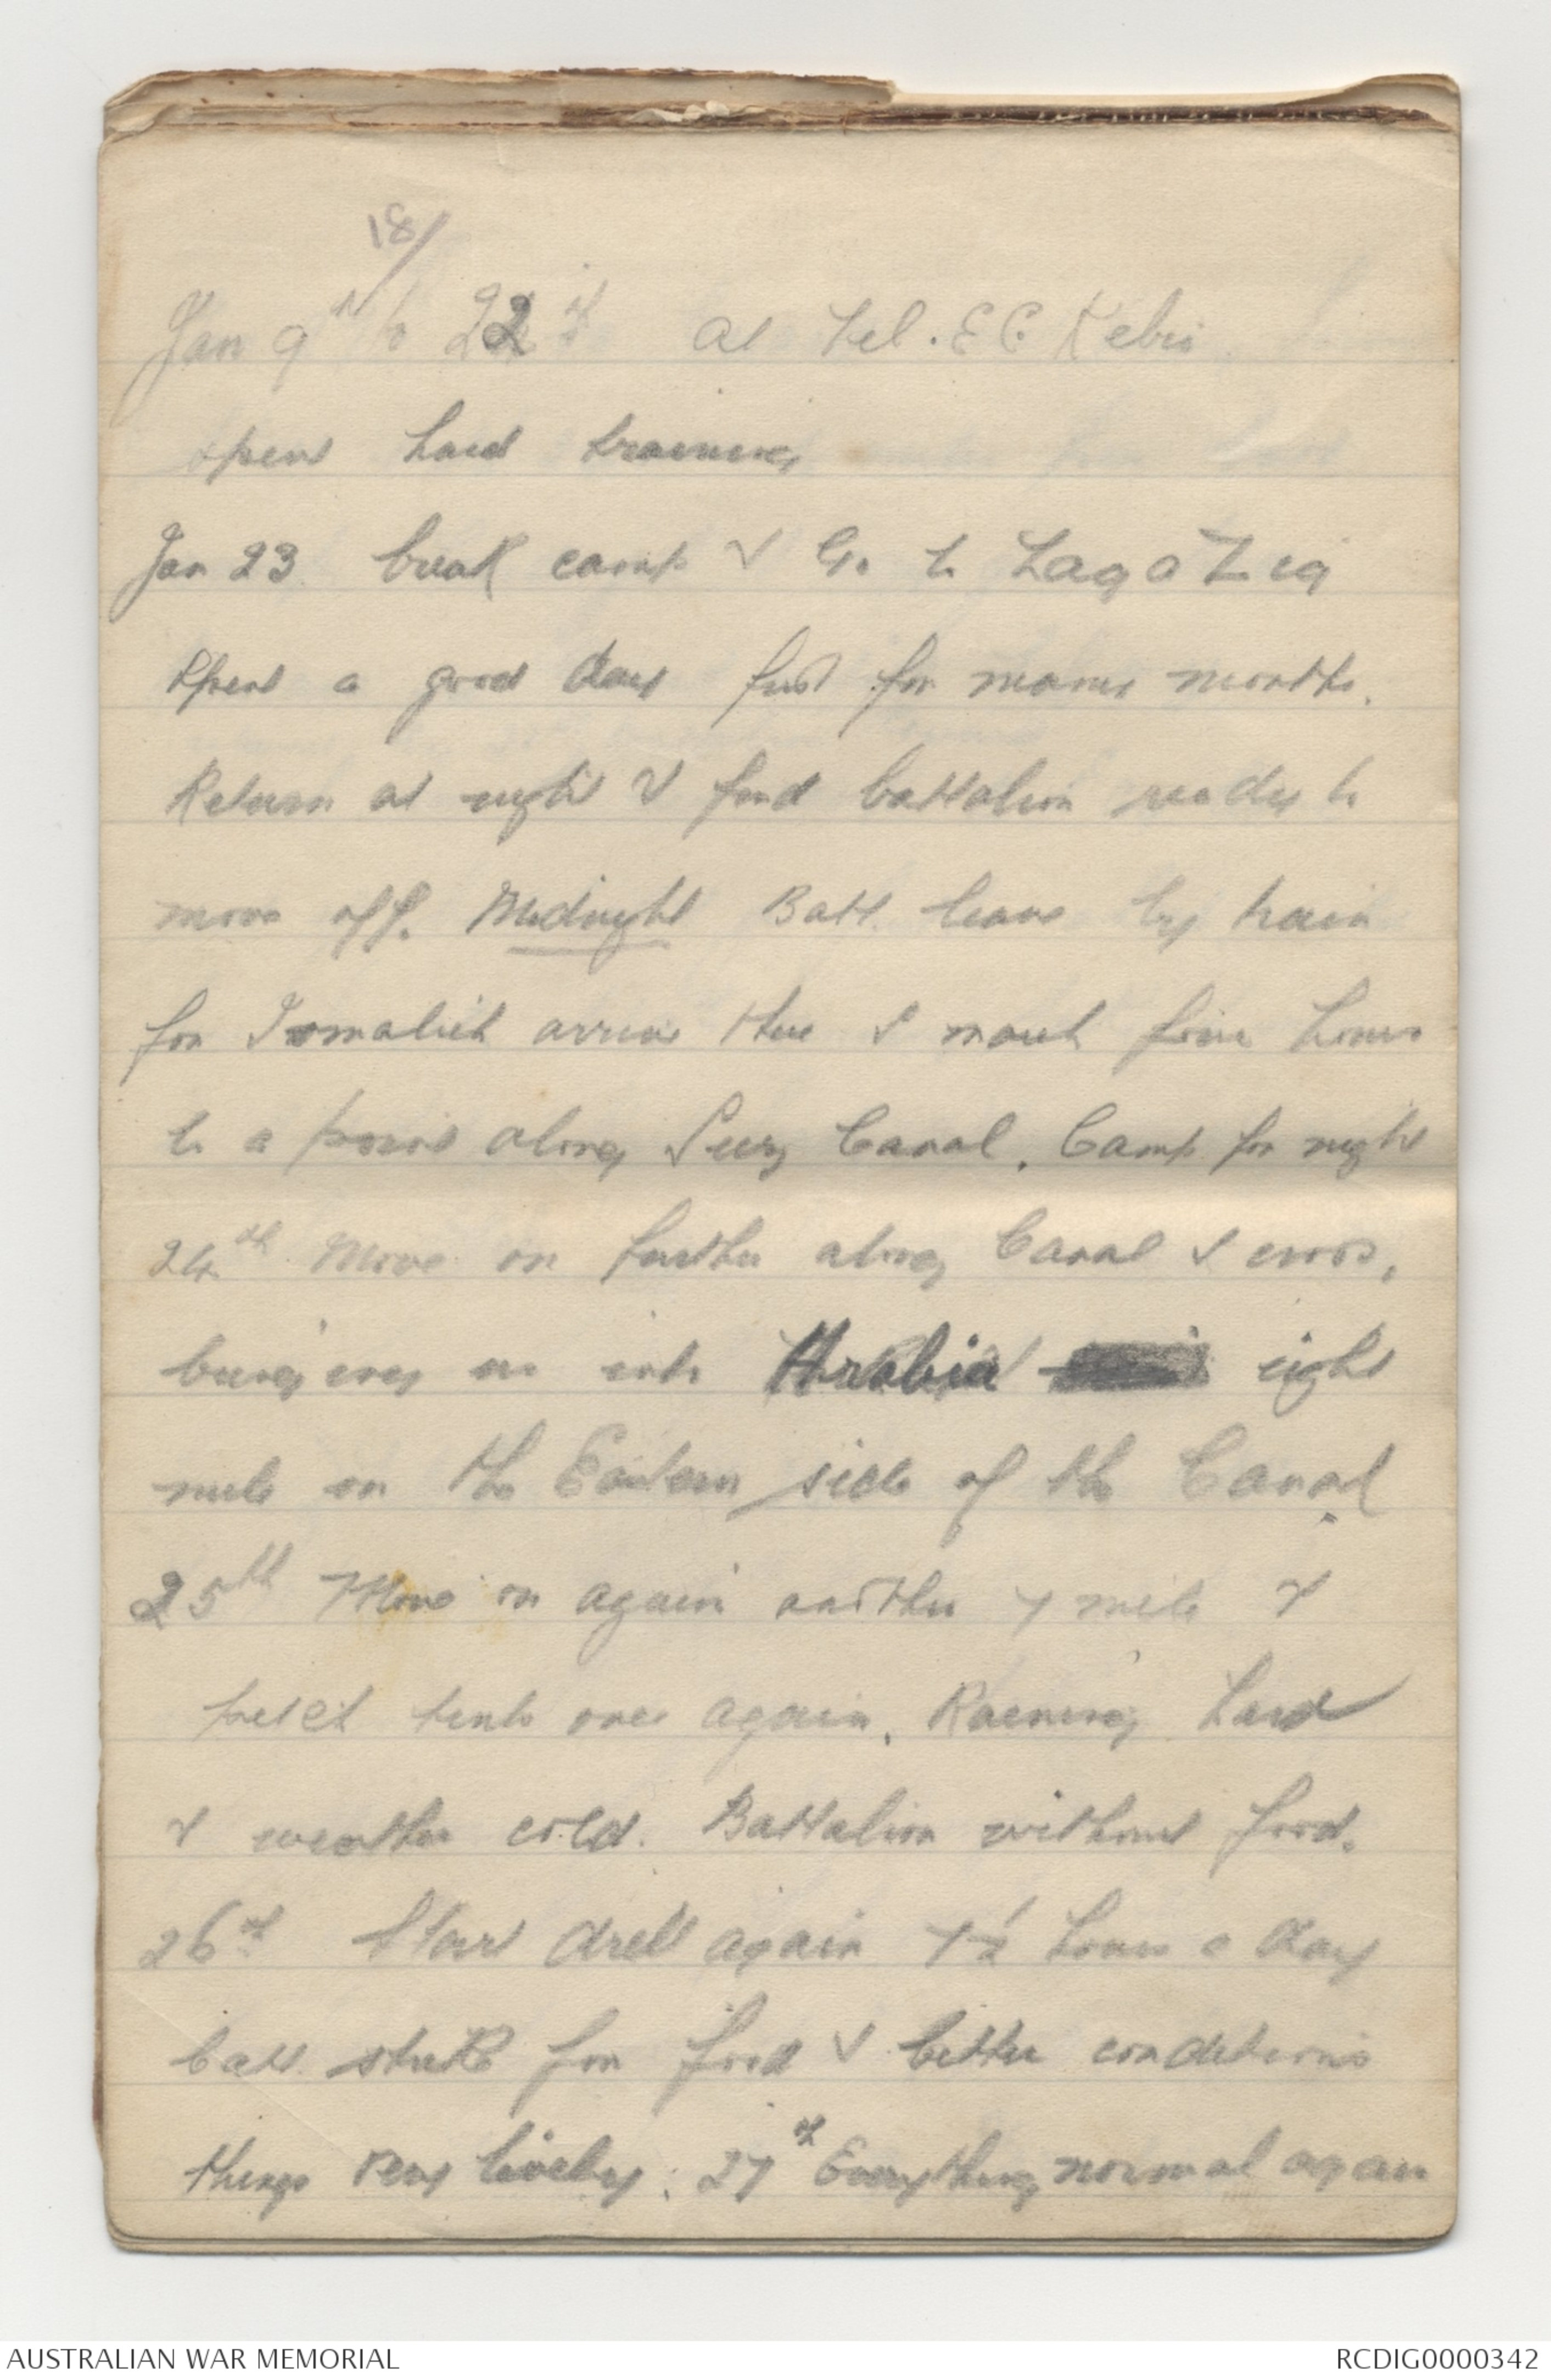 18/
Jan 9th to 22nd at Tel. El Kebir
spent hard training
Jan 23 break camp & Go to ZagaZig
spent a good day first for many months.
Return at night & find battalion ready to
move off. Midnight Batt. leave by train
for Ismalieh arrive there & march four hours
to a point along Suez Canal. Camp for night
24th Move on further along Canal & cross,
bringing us into Arabia eight
mile on the Eastern side of the Canal
25th Move on again another 7 mile &
tents once again. Raining hard
& weather cold. Battalion without food.
26th Start drill again 7½ hours a day
batt. strike for food & better conditions
things very lively. 27th Everything normal again
AUSTRALIAN WAR MEMORIAL
RCDIG0000342